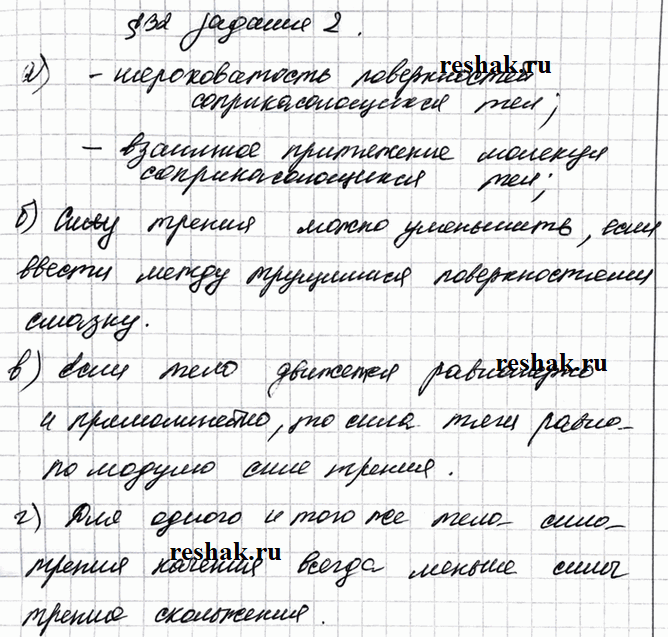 §32 задание 2.
а) - шероховатость поверхностей
соприкасающихся тел;
- взаимное притяжение молекул
соприкасающихся тел;
б) Силу трения можно уменьшить, если
ввести между трущимися поверхностями
смазку.
в) Если тело движется равномерно
и прямолинейно, то сила тяги равна
по модулю силе трения.
г) Для одного и того же тела сила
трения качения всегда меньше силы
трения скольжения.
reshak.ru
reshak.ru
reshak.ru